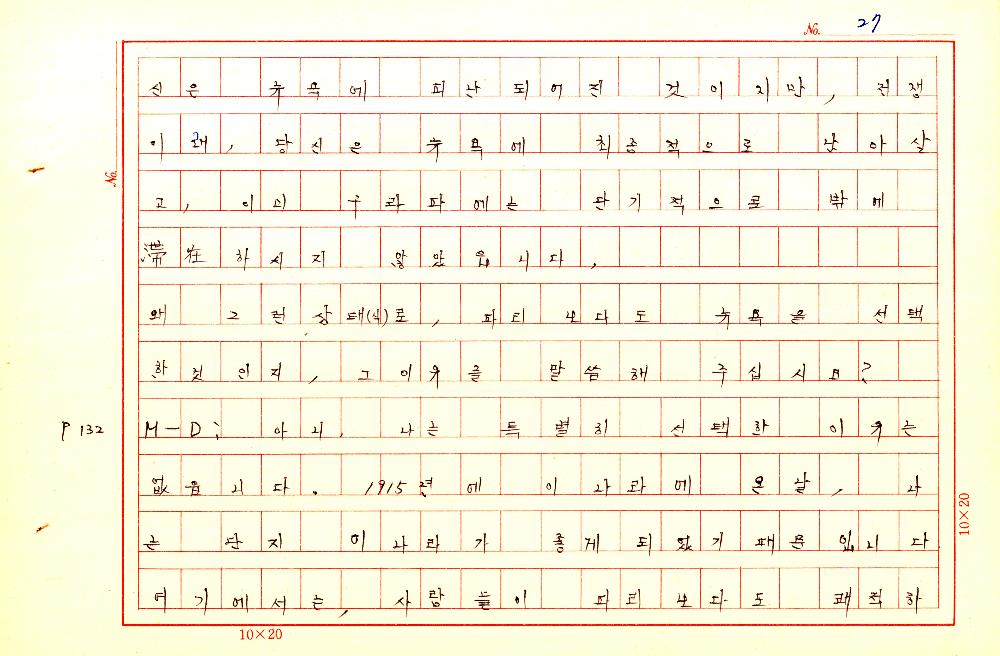 No. 27
신은 뉴욕에 피난되어진 것이지만, 전쟁
이래, 당신은 뉴욕에 최종적으로 남아살
고, 이미 구라파에는 단기적으로 밖에
滞在하시지 않았읍니다.
왜 그런 상태(식)로, 파리보다도 뉴욕을 선택
한것인지, 그이유를 말씀해 주십시요?
P 132 M-D; 아니, 나는 특별히 선택한 이유는
없읍니다. 1915년에 이나라에 온날, 나
는 단지 이나라가 좋게 되었기 때문입니다
여기에서는, 사람들이 파리보다도 쾌적하
No.
10×20
10×20